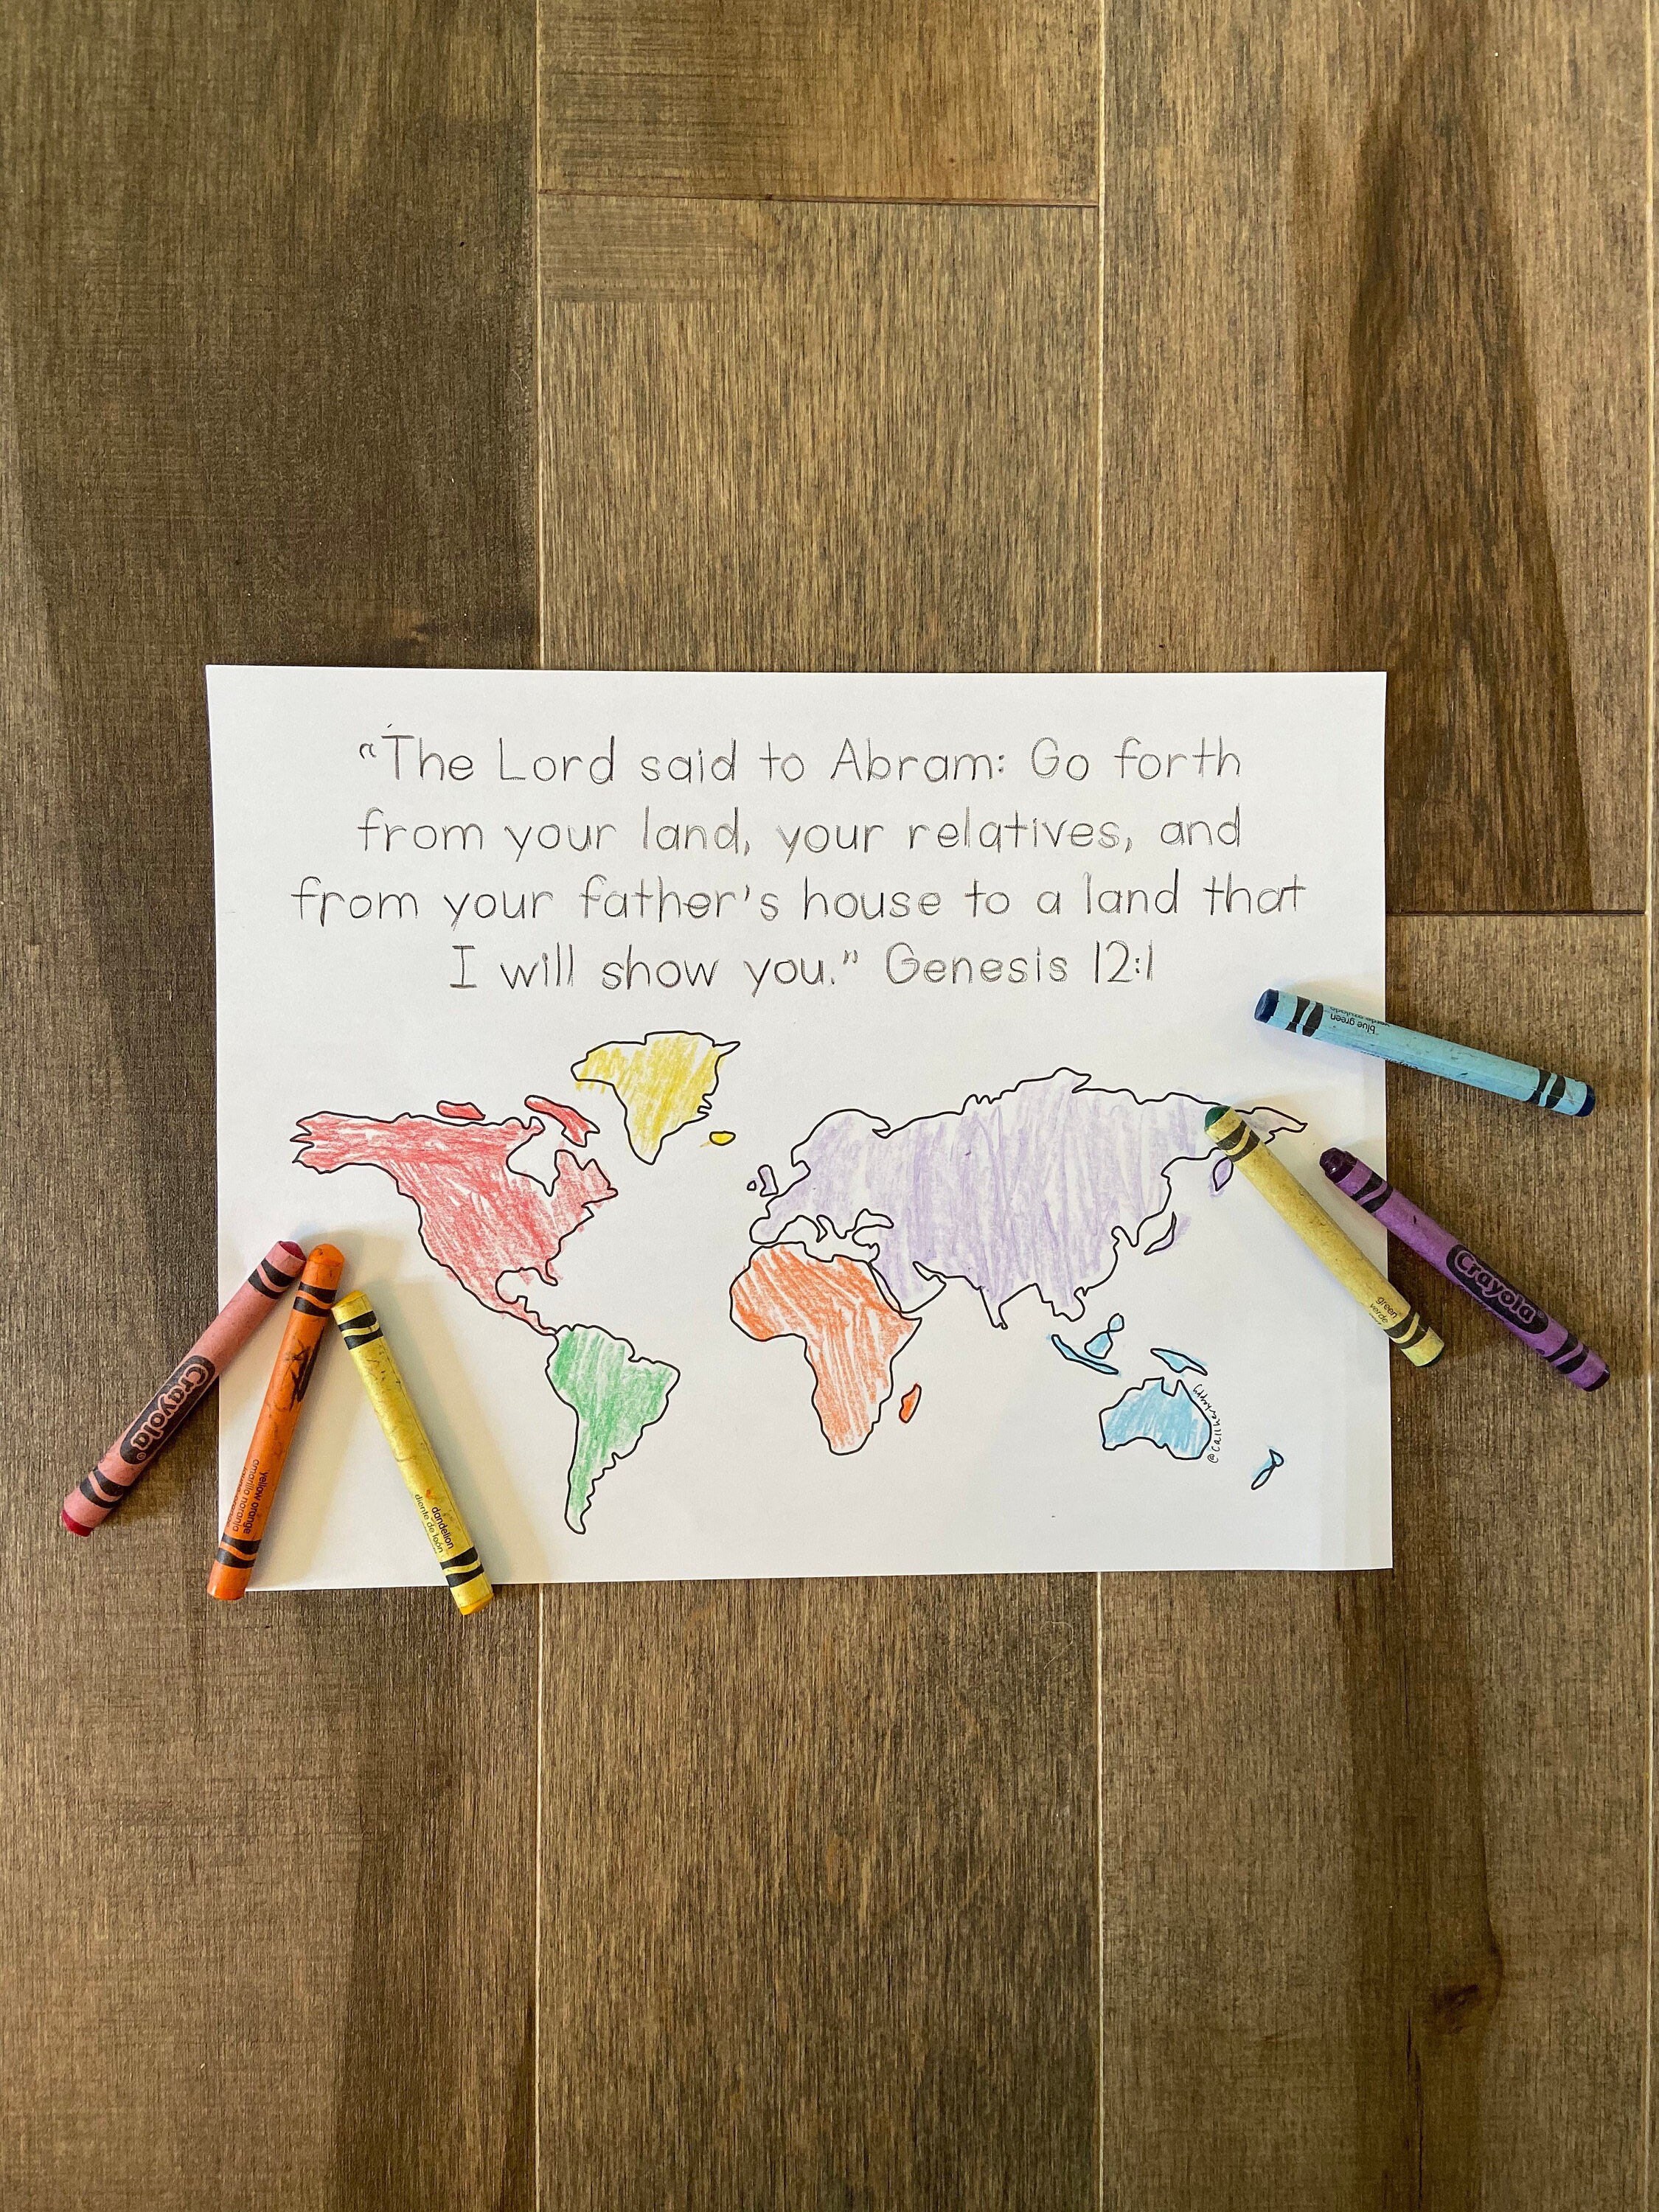 “The Lord said to Abram: Go forth
from your land, your relatives, and
from your father's house to a land that
I will show you.” Genesis 12:1
blue green
Crayola
green
verde
Crayola
yellow orange
amarillo naranja
dandelion
diente de león